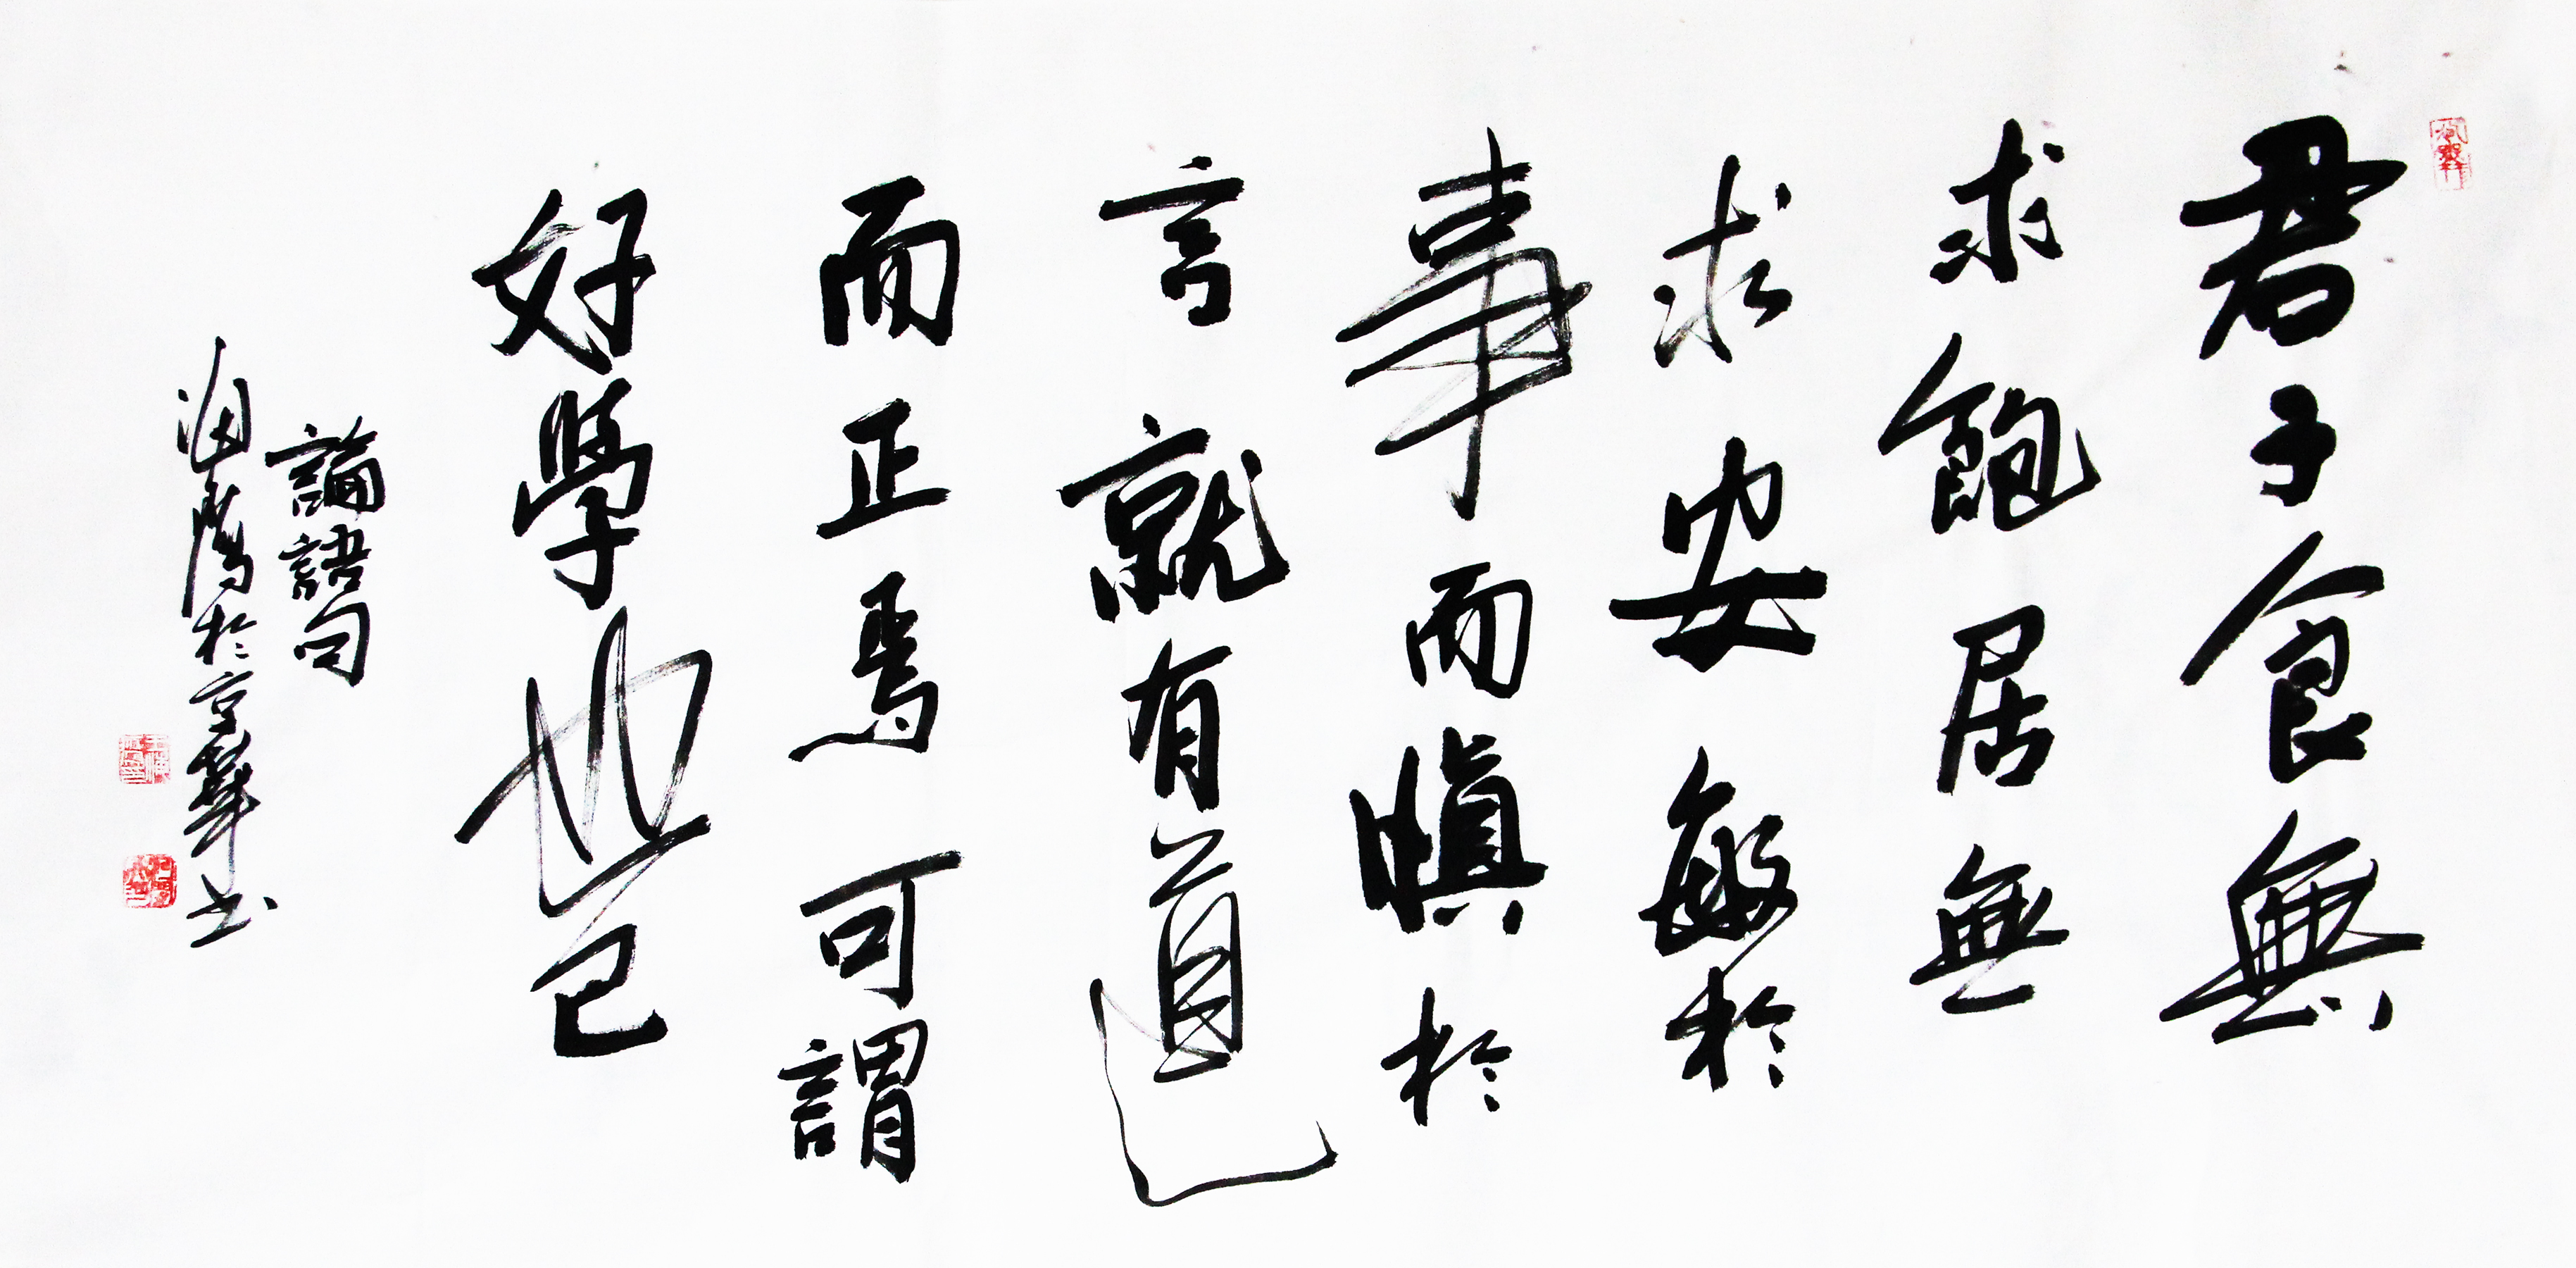 君子食無
求飽居無
求安敏於
事而慎於
言就有道
而正焉可謂
好學也已
論語句
海鷹於京華書